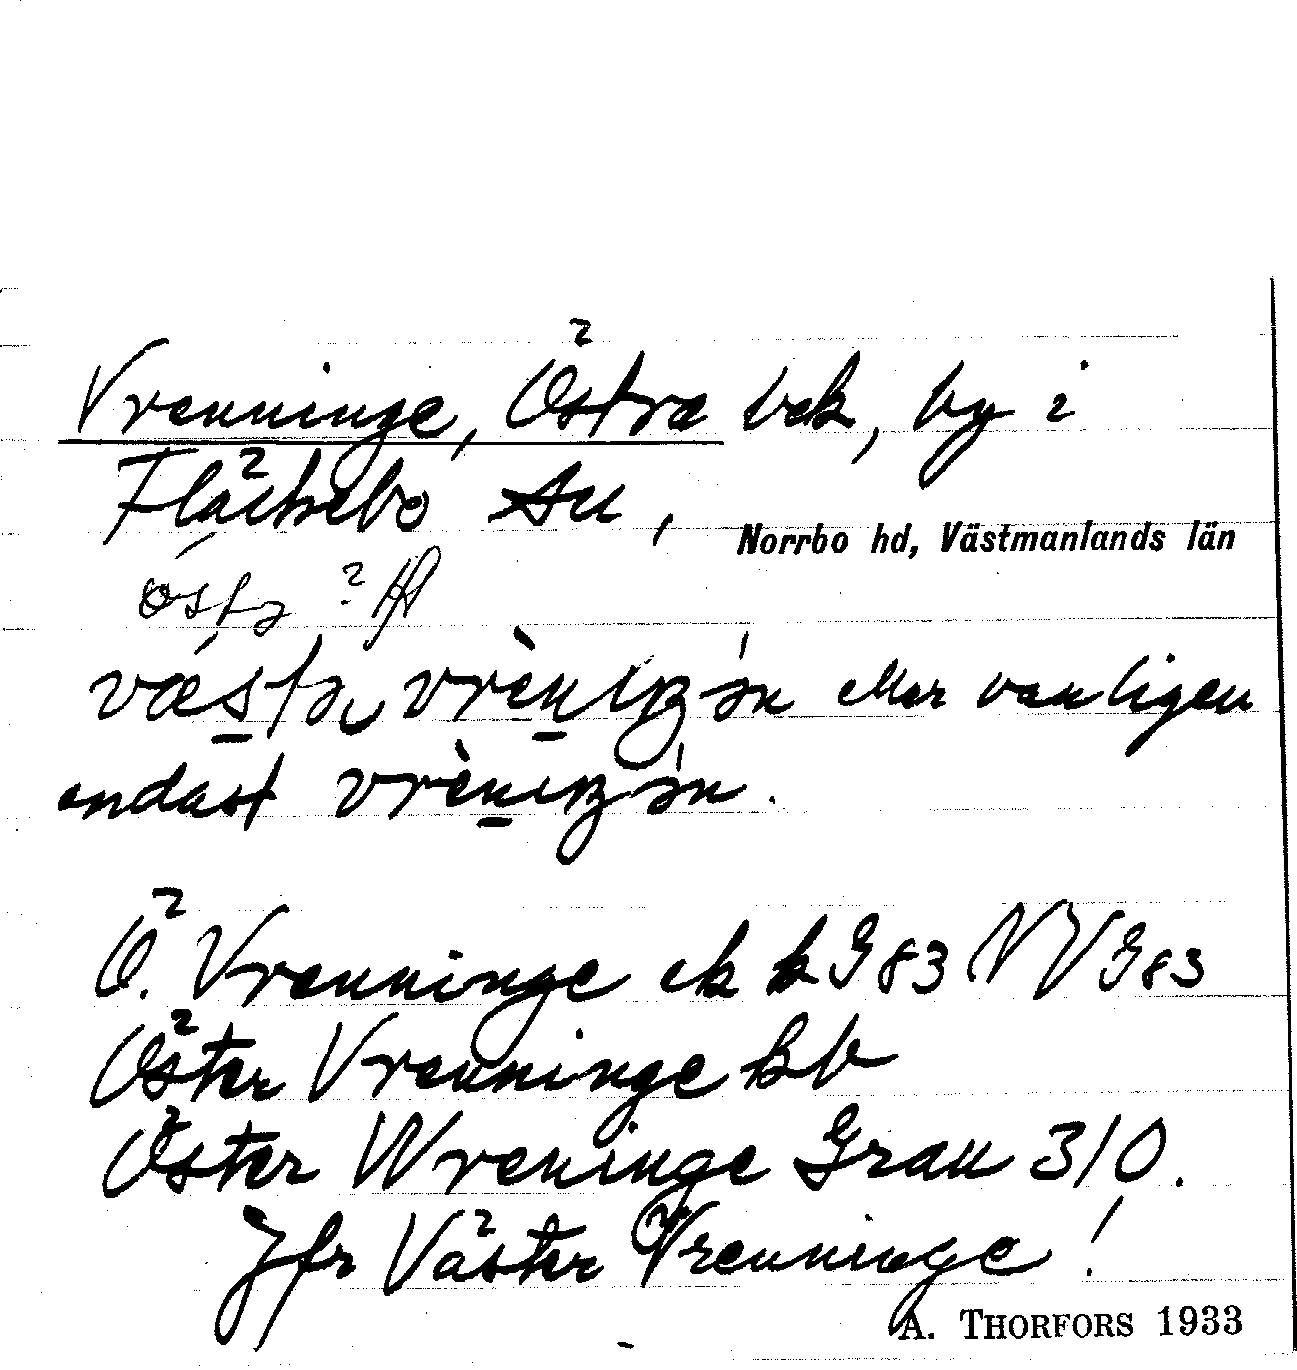 Vrenninge, Östra bek, by i
Fläckebo sn,
Norrbo hd, Västmanlands län
vrèninjən eller vanligen
endast vrèninjən.
Ö. Vrenninge ek k G 83 NVG83
Öster Vrenninge kb
Öster Wreninge Grau 310.
Jfr Väster Vrenninge!
A. THORFORS 1933